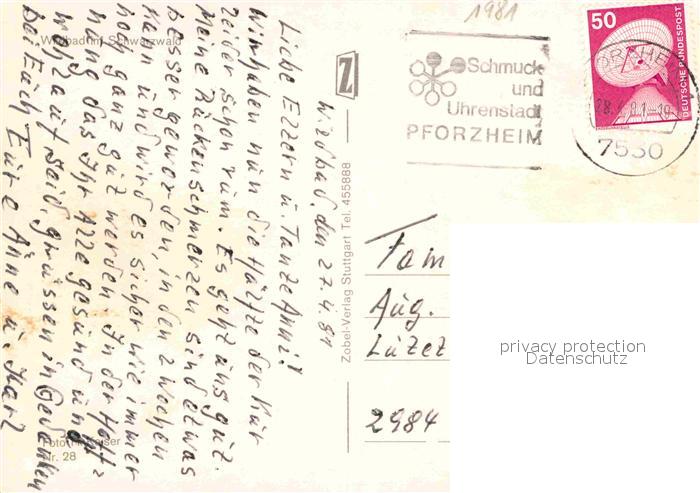 1981
Wildbad im Schwarzwald
Wildbad, den 27.4.81
Liebe Eltern u. Tante Anni!
Wir haben nun die Hälfte der Kur
leider schon rum. Es geht uns gut.
Meine Rückenschmerzen sind etwas
besser geworden, in den 2 Wochen
kann und wird es sicher wie immer
noch ganz gut werden. In der Hoff=
nung das Ihr Alle gesund und
auf seid, grüssen in Gedanken
bei Euch Eure Änne u. Karl
Foto: H. Kaiser
Nr. 28
Zobel-Verlag Stuttgart Tel. 455888
Z
Schmuck
und
Uhrenstadt
PFORZHEIM
50
DEUTSCHE BUNDESPOST
28.4.81
7530
Fam
Aug.
Lützet
2984
privacy protection
Datenschutz